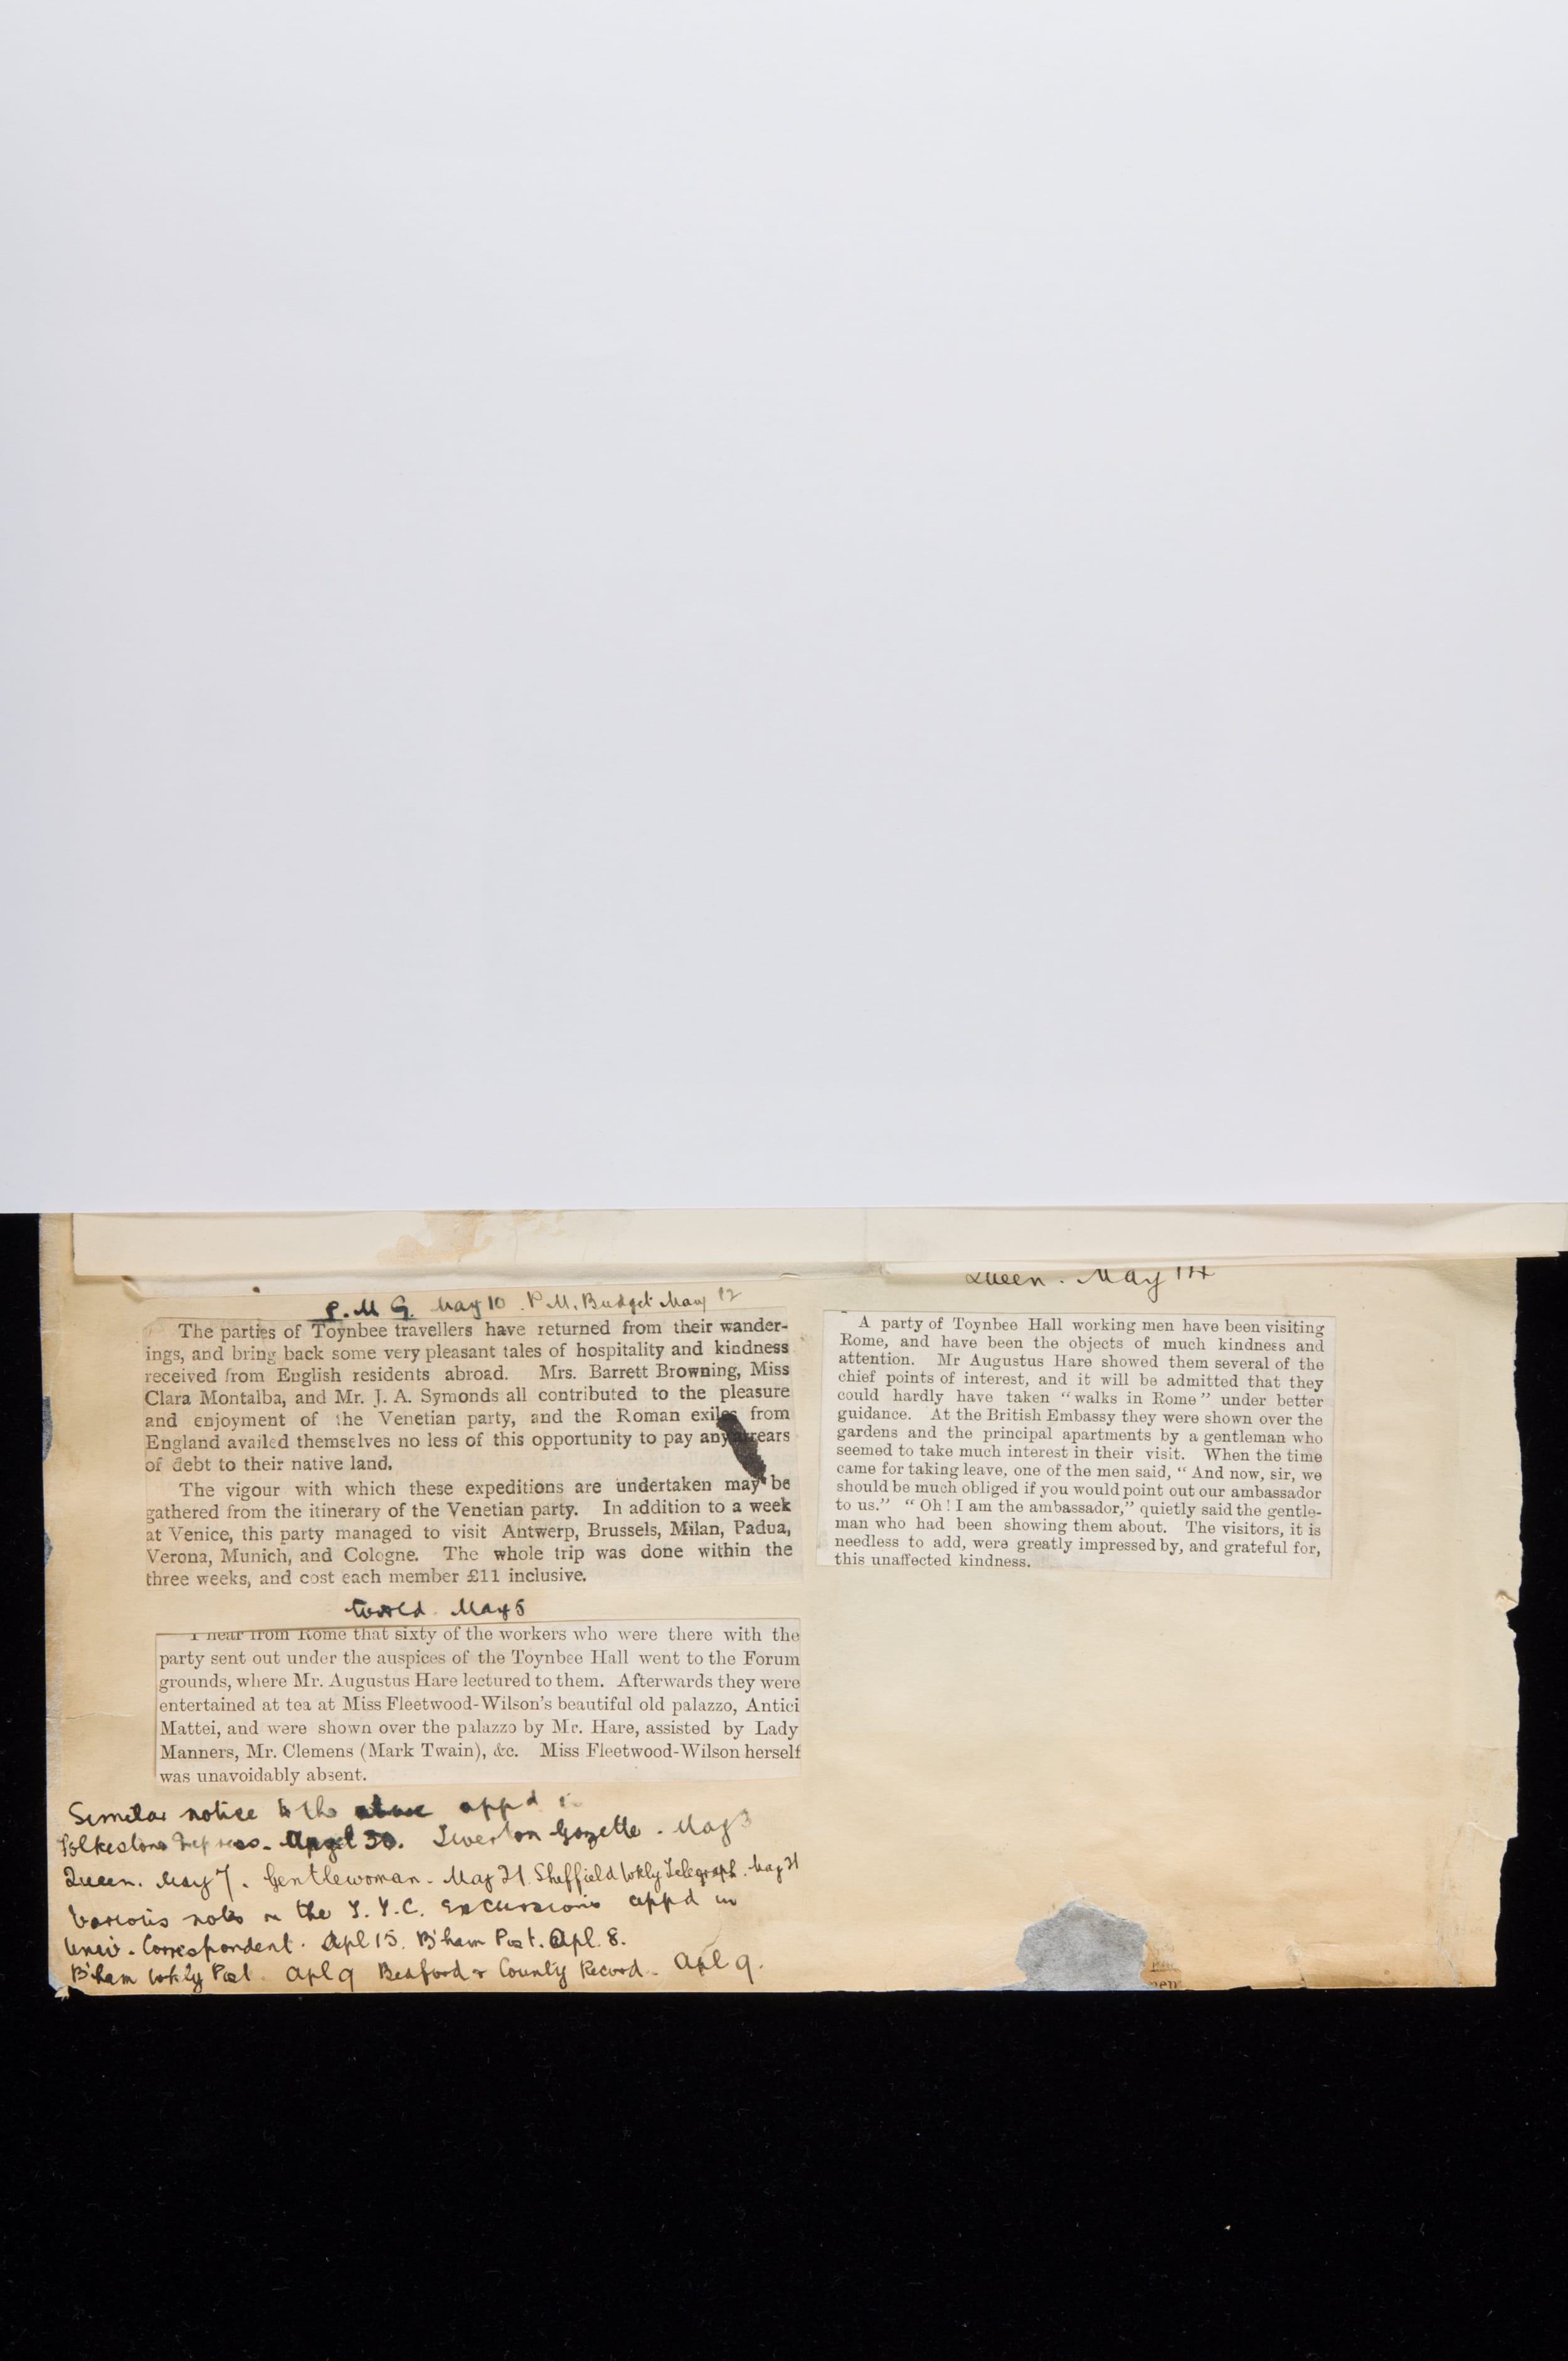 P.M.G. May 10. P.M. Budget May 12
The parties of Toynbee travellers have returned from their wander-
ings, and bring back some very pleasant tales of hospitality and kindness
received from English residents abroad. Mrs. Barrett Browning, Miss
Clara Montalba, and Mr. J. A. Symonds all contributed to the pleasure
and enjoyment of the Venetian party, and the Roman exiles from
England availed themselves no less of this opportunity to pay any arrears
of debt to their native land.
The vigour with which these expeditions are undertaken may be
gathered from the itinerary of the Venetian party. In addition to a week
at Venice, this party managed to visit Antwerp, Brussels, Milan, Padua,
Verona, Munich, and Cologne. The whole trip was done within the
three weeks, and cost each member £11 inclusive.
World. May 5
I hear from Rome that sixty of the workers who were there with the
party sent out under the auspices of the Toynbee Hall went to the Forum
grounds, where Mr. Augustus Hare lectured to them. Afterwards they were
entertained at tea at Miss Fleetwood-Wilson's beautiful old palazzo, Antici
Mattei, and were shown over the palazzo by Mr. Hare, assisted by Lady
Manners, Mr. Clemens (Mark Twain), &c. Miss Fleetwood-Wilson herself
was unavoidably absent.
Similar notice to the above appd in
Folkestone Express. April 30. Tiverton Gazette. May 3
Queen. May 7. Gentlewoman. May 21. Sheffield Wkly Telegraph. May 21
Various notes on the T.T.C. Excursions appd in
Univ. Correspondent. Apl 15. B'ham Post. Apl. 8.
B'ham Wkly Post. Apl 9 Bedford & County Record. Apl 9.
Queen. May 14
A party of Toynbee Hall working men have been visiting
Rome, and have been the objects of much kindness and
attention. Mr Augustus Hare showed them several of the
chief points of interest, and it will be admitted that they
could hardly have taken "walks in Rome" under better
guidance. At the British Embassy they were shown over the
gardens and the principal apartments by a gentleman who
seemed to take much interest in their visit. When the time
came for taking leave, one of the men said, "And now, sir, we
should be much obliged if you would point out our ambassador
to us." "Oh! I am the ambassador," quietly said the gentle-
man who had been showing them about. The visitors, it is
needless to add, were greatly impressed by, and grateful for,
this unaffected kindness.